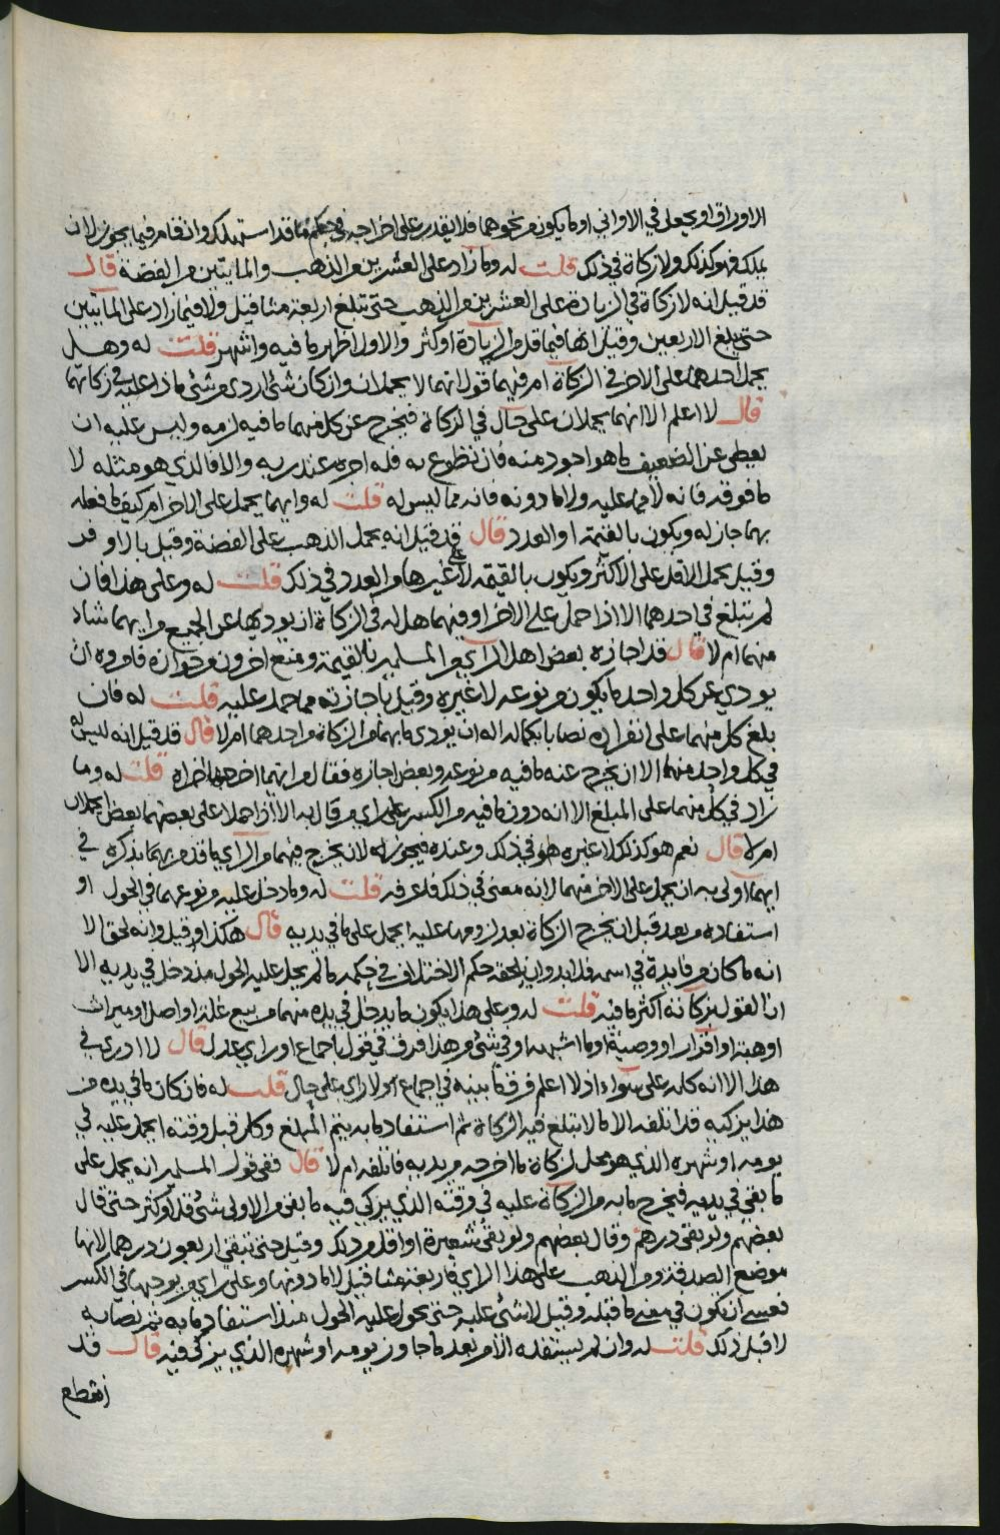 الاوراق او يجعل في الاواني او ما يكون من نحوهما فلا يقدر على اخراجه في حكم ما قد استهلك وان قام فيما يجوز لان
يملك فهو كذلك ولا زكاة في ذلك قلت له وما زاد على العشرين من الذهب والمايتين من الفضة قال
قد قيل انه لا زكاة في الزيادة على العشرين من الذهب حتى تبلغ اربعة مثاقيل ولا فيما زاد على المايتين
حتى يبلغ الاربعين وقيل انها فيما قل من الزيادة او كثر والاول اظهر ما فيه واشهر قلت له وهل
يحمل احدهما على الاخر في الزكاة ام فيهما قول انهما لا يحملان وان كان شئ اردى من شئ ماذا عليه في زكاتهما
قال لا اعلم الا انهما يحملان على حال في الزكاة فيخرج عن كل منهما ما فيه لزمه وليس عليه ان
يعطي عن الضعيف ما هو اجود منه فان تطوع به فله اجره عند ربه والا فالذي هو مثله لا
ما فوقه فانه لا مما عليه ولا ما دونه فانه مما ليس له قلت له وايهما يحمل على الاخر ام كيف ما فعله
بهما جاز له ويكون بالقيمة او العدد قال قد قيل انه يحمل الذهب على الفضة وقيل بالاوفر
وقيل يحمل الاقل على الاكثر ويكون بالقيمة لا على غيرها من العدد في ذلك قلت له وعلى هذا فان
لم تبلغ في احدهما الا اذا حمل على الاخر او فيهما هل له في الزكاة ان يوديها عن الجميع من ايهما شاء
منهما ام لا قال قد اجازه بعض اهل الراي من المسلمين بالقيمة ومنع اخرون من جوازه فامروه ان
يودي عن كل واحد ما يكون من نوعه لا غيره وقيل باجازته مما حمل عليه قلت له فان
بلغ كل منهما على انفراده نصابا بكماله اله ان يودي ما بهما من الزكاة من احدهما ام لا قال قد قيل انه ليس له
في كل واحد منهما الا ان يخرج عنه ما فيه من نوعه وبعض اجازه فقال من ايهما اخرجها اجزاه قلت له وما
زاد في كل منهما على المبلغ الا انه دون ما فيه من الكسر على راي من قال به الا اذا حملا على بعضهما بعض ايحملان
ام لا قال نعم هو كذلك لا غيره هو في ذلك وعنده فيجوز له لان يخرج فيهما من الراي ما قدم بهما بذكره في
ايهما اولى به ان يحمل على الاخر منهما لانه معنى في ذلك فاعرفه قلت له وما دخل عليه من نوعهما في الحول او
استفاده من بعد قبل ان يخرج الزكاة بعد لزومها عليه ايحمل على ما في يديه قال هكذا قيل وانه لحق الا
انه ما كان من فايدة في اسمه فلابد وان يلحقه حكم الاختلاف في حكمه ما لم يحل عليه الحول منذ دخل في يديه الا
ان القول بزكاته اكثر ما فيه قلت له وعلى هذا يكون ما يدخل في يده منهما من بيع غلة او اصل او ميراث
او هبة او اقرار او وصية او ما اشبهه او في شئ من هذا فرق في قول باجماع او راي عدل قال لا ادري في
هذا الا انه كله على سواء اذ لا اعلم فرق ما بينه في اجماع ولا راي على حال قلت له فان كان ما في يده من
هذا يزكيه قد اتلفه الا ما لا تبلغ فيه الزكاة ثم استفاد ما به يتم المبلغ وكان قبل وقته ايحمل عليه في
يومه او شهره الذي هو محل لزكاة ما اخرجه من يديه فاتلفه ام لا قال ففي قول المسلمين انه يحمل على
ما بقي في يديه فيخرج ما به من الزكاة عليه في وقته الذي يزكي فيه ما بقي من الاولى شئ قل او كثر حتى قال
بعضهم ولو بقي درهم وقال بعضهم ولو بقي شعيرة او اقل من ذلك وقيل حتى تبقى اربعون درهما لانها
موضع الصدقة ومن الذهب على هذا الراي فاربعة مثاقيل لا ما دونها وعلى راي من يوجبها في الكسر
فعسى ان يكون في معنى ما قبله وقيل لا شئ عليه حتى يحول عليه الحول منذ استفاد ما به يتم نصابه
لا قبل ذلك قلت له وان لم يستفده الا من بعد ما جاوز يومه او شهره الذي يزكي فيه قال قد
انقطع